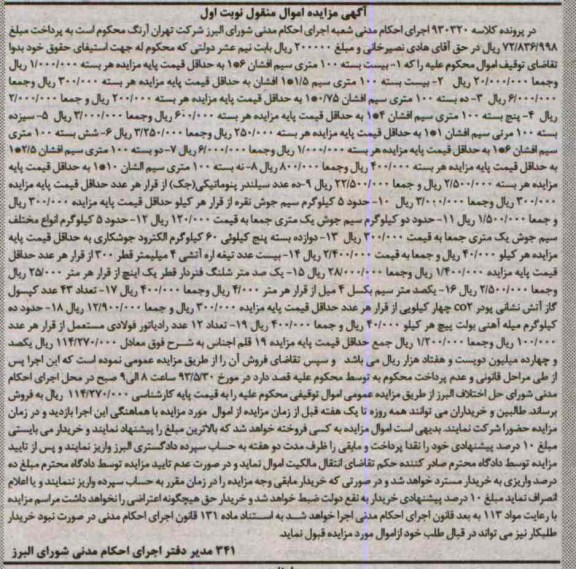 آگهی مزایده اموال منقول نوبت اول
در پرونده کلاسه ۹۳۰۳۲۰ اجرای احکام مدنی شعبه اجرای احکام مدنی شورای البرز شرکت تهران آرنگ محکوم است به پرداخت مبلغ
۷۲/۸۳۶/۹۹۸ ریال در حق آقای هادی نصیرخانی و مبلغ ۲۰۰۰۰۰ ریال بابت نیم عشر دولتی که محکوم له جهت استیفای حقوق خود بدوا
تقاضای توقیف اموال محکوم علیه را که ۱- بیست بسته ۱۰۰ متری سیم افشان ۶*۱ به حداقل قیمت پایه مزایده هر بسته ۱/۰۰۰/۰۰۰ ریال
وجمعا ۲۰/۰۰۰/۰۰۰ ریال ۲- بیست بسته ۱۰۰ متری سیم ۱/۵*۱ افشان به حداقل قیمت پایه مزایده هر بسته ۳۰۰/۰۰۰ ریال وجمعا
۶/۰۰۰/۰۰۰ ریال ۳- ده بسته ۱۰۰ متری سیم افشان ۰/۷۵*۱ به حداقل قیمت پایه مزایده هر بسته ۲۰۰/۰۰۰ ریال و جمعا ۲/۰۰۰/۰۰۰
ریال ۴- پنج بسته ۱۰۰ متری سیم افشان ۴*۱ به حداقل قیمت پایه مزایده هر بسته ۶۰۰/۰۰۰ ریال وجمعا ۳/۰۰۰/۰۰۰ ریال ۵- سیزده
بسته ۱۰۰ مرتی سیم افشان ۱*۱ به حداقل قیمت پایه مزایده هر بسته ۲۵۰/۰۰۰ ریال وجمعا ۳/۲۵۰/۰۰۰ ریال ۶- شش بسته ۱۰۰ متری
سیم افشان ۶*۱ به حداقل قیمت پایه مزایده هر بسته ۱/۰۰۰/۰۰۰ ریال وجمعا ۶/۰۰۰/۰۰۰ ریال ۷- دو بسته ۱۰۰ متری سیم افشان ۲/۵*۱
به حداقل قیمت پایه مزایده هر بسته ۴۰۰/۰۰۰ ریال وجمعا ۸۰۰/۰۰۰ ریال ۸- نه بسته ۱۰۰ متری سیم افشان ۱۰*۱ به حداقل قیمت پایه
مزایده هر بسته ۲/۵۰۰/۰۰۰ ریال و جمعا ۲۲/۵۰۰/۰۰۰ ریال ۹- ده عدد سیلندر پنوماتیکی(جک) از قرار هر عدد حداقل قیمت پایه مزایده
۳۰۰/۰۰۰ ریال وجمعا ۳/۰۰۰/۰۰۰ ریال ۱۰- حدود ۵ کیلوگرم سیم جوش نقره از قرار هر کیلو حداقل قیمت پایه مزایده ۳۰۰/۰۰۰ ریال
و جمعا ۱/۵۰۰/۰۰۰ ریال ۱۱- حدود دو کیلوگرم سیم جوش یک متری جمعا به قیمت ۱۲۰/۰۰۰ ریال ۱۲- حدود ۵ کیلوگرم انواع مختلف
سیم جوش یک متری جمعا به قیمت ۳۰۰/۰۰۰ ریال ۱۳- دوازده بسته پنج کیلوئی ۶۰ کیلوگرم الکترود جوشکاری به حداقل قیمت پایه
مزایده هر کیلو ۴۰/۰۰۰ ریال و جمعا به قیمت ۲/۴۰۰/۰۰۰ ریال ۱۴- بیست عدد تیغه اره آتشی ۴ میلیمتر قطر ۳۰۰ از قرار هر عدد حداقل
قیمت پایه مزایده ۱/۴۰۰/۰۰۰ ریال وجمعا ۲۸/۰۰۰/۰۰۰ ریال ۱۵- یک صد متر شلنگ فنردار قطر یک اینچ از قرار هر متر ۲۵/۰۰۰ ریال
وجمعا ۲/۵۰۰/۰۰۰ ریال ۱۶- یکصد متر سیم بکسل ۴ میل از قرار هر متر ۴/۰۰۰ ریال وجمعا ۴۰۰/۰۰۰ ریال ۱۷- تعداد ۴۳ عدد کپسول
گاز آتش نشانی پودر co۲ چهار کیلویی از قرار هر عدد حداقل قیمت پایه مزایده ۳۰۰/۰۰۰ ریال و جمعا ۱۲/۹۰۰/۰۰۰ ریال ۱۸- حدود ده
کیلوگرم میله آهنی بولت پیچ هر کیلو ۴۰/۰۰۰ ریال و جمعا ۴۰۰/۰۰۰ ریال ۱۹- تعداد ۱۲ عدد رادیاتور فولادی مستعمل از قرار هر عدد
۱۰۰/۰۰۰ ریال وجمعا ۱/۲۰۰/۰۰۰ ریال جمع حداقل قیمت پایه مزایده ۱۹ قلم اجناس به شرح فوق معادل ۱۱۴/۲۷۰/۰۰۰ ریال یکصد
و چهارده میلیون دویست و هفتاد هزار ریال می باشد و سپس تقاضای فروش آن را از طریق مزایده عمومی نموده است که این اجرا پس
از طی مراحل قانونی و عدم پرداخت محکوم به توسط محکوم علیه قصد دارد در مورخ ۹۳/۵/۳۰ ساعت ۸ الی۹ صبح در محل اجرای احکام
مدنی شورای حل اختلاف البرز از طریق مزایده عمومی اموال توقیفی محکوم علیه را به قیمت پایه کارشناسی ۱۱۴/۲۷۰/۰۰۰ ریال به فروش
برساند. طالبین و خریداران می توانند همه روزه تا یک هفته قبل از زمان مزایده از اموال مورد مزایده با هماهنگی این اجرا بازدید و در زمان
مزایده حضورا شرکت نمایند. بدیهی است اموال مزایده به کسی فروخته خواهد شد که بالاترین مبلغ را پیشنهاد نمایند و خریدار می بایستی
مبلغ ۱۰ درصد پیشنهادی خود را نقدا پرداخت و مابقی را ظرف مدت دو هفته به حساب سپرده دادگستری البرز واریز نمایند و پس از تایید
مزایده توسط دادگاه محترم صادر کننده حکم تقاضای انتقال مالکیت اموال نماید و در صورت عدم تایید مزایده توسط دادگاه محترم مبلغ ده
درصد واریزی به خریدار مسترد خواهد شد و در صورتی که خریدار مابقی وجه مزایده را در زمان مقرر به حساب سپرده واریز ننمایند و یا اعلام
انصراف نماید مبلغ ۱۰ درصد پیشنهادی خریدار به نفع دولت ضبط خواهد شد و خریدار حق هیچگونه اعتراضی را نخواهد داشت مراسم مزایده
با رعایت مواد ۱۱۳ به بعد قانون اجرای احکام مدنی اجرا خواهد شد به استناد ماده ۱۳۱ قانون اجرای احکام مدنی در صورت نبود خریدار
طلبکار نیز می تواند در قبال طلب خود ازاموال مورد مزایده قبول نماید.
۳۴۱ مدیر دفتر اجرای احکام مدنی شورای البرز